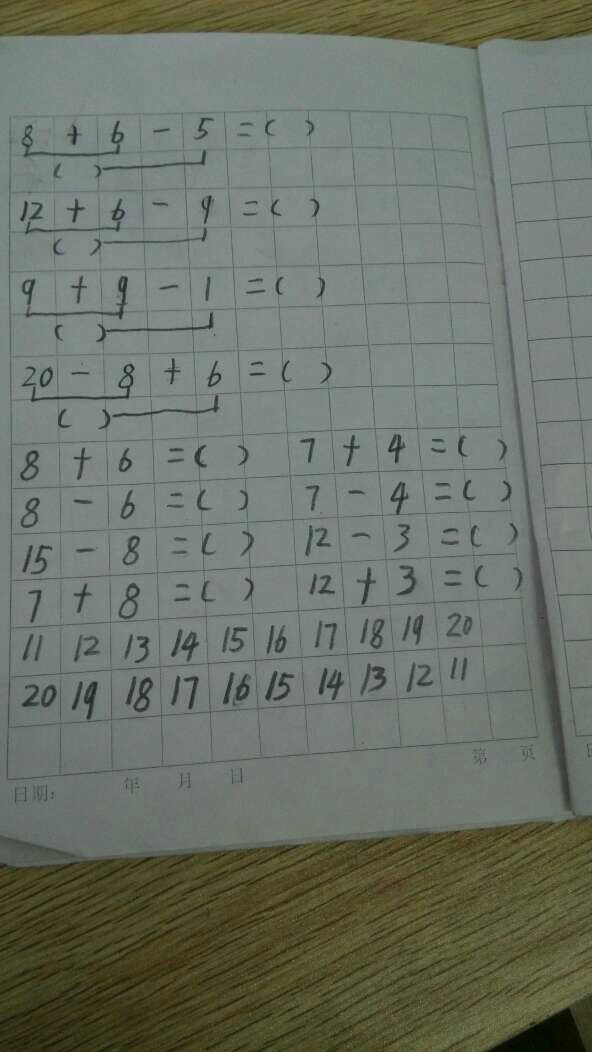 8 + 6 - 5 = ( )
( )
12 + 6 - 9 = ( )
( )
9 + 9 - 1 = ( )
( )
20 - 8 + 6 = ( )
( )
8 + 6 = ( ) 7 + 4 = ( )
8 - 6 = ( ) 7 - 4 = ( )
15 - 8 = ( ) 12 - 3 = ( )
7 + 8 = ( ) 12 + 3 = ( )
11 12 13 14 15 16 17 18 19 20
20 19 18 17 16 15 14 13 12 11
日期: 年 月 日 第 页